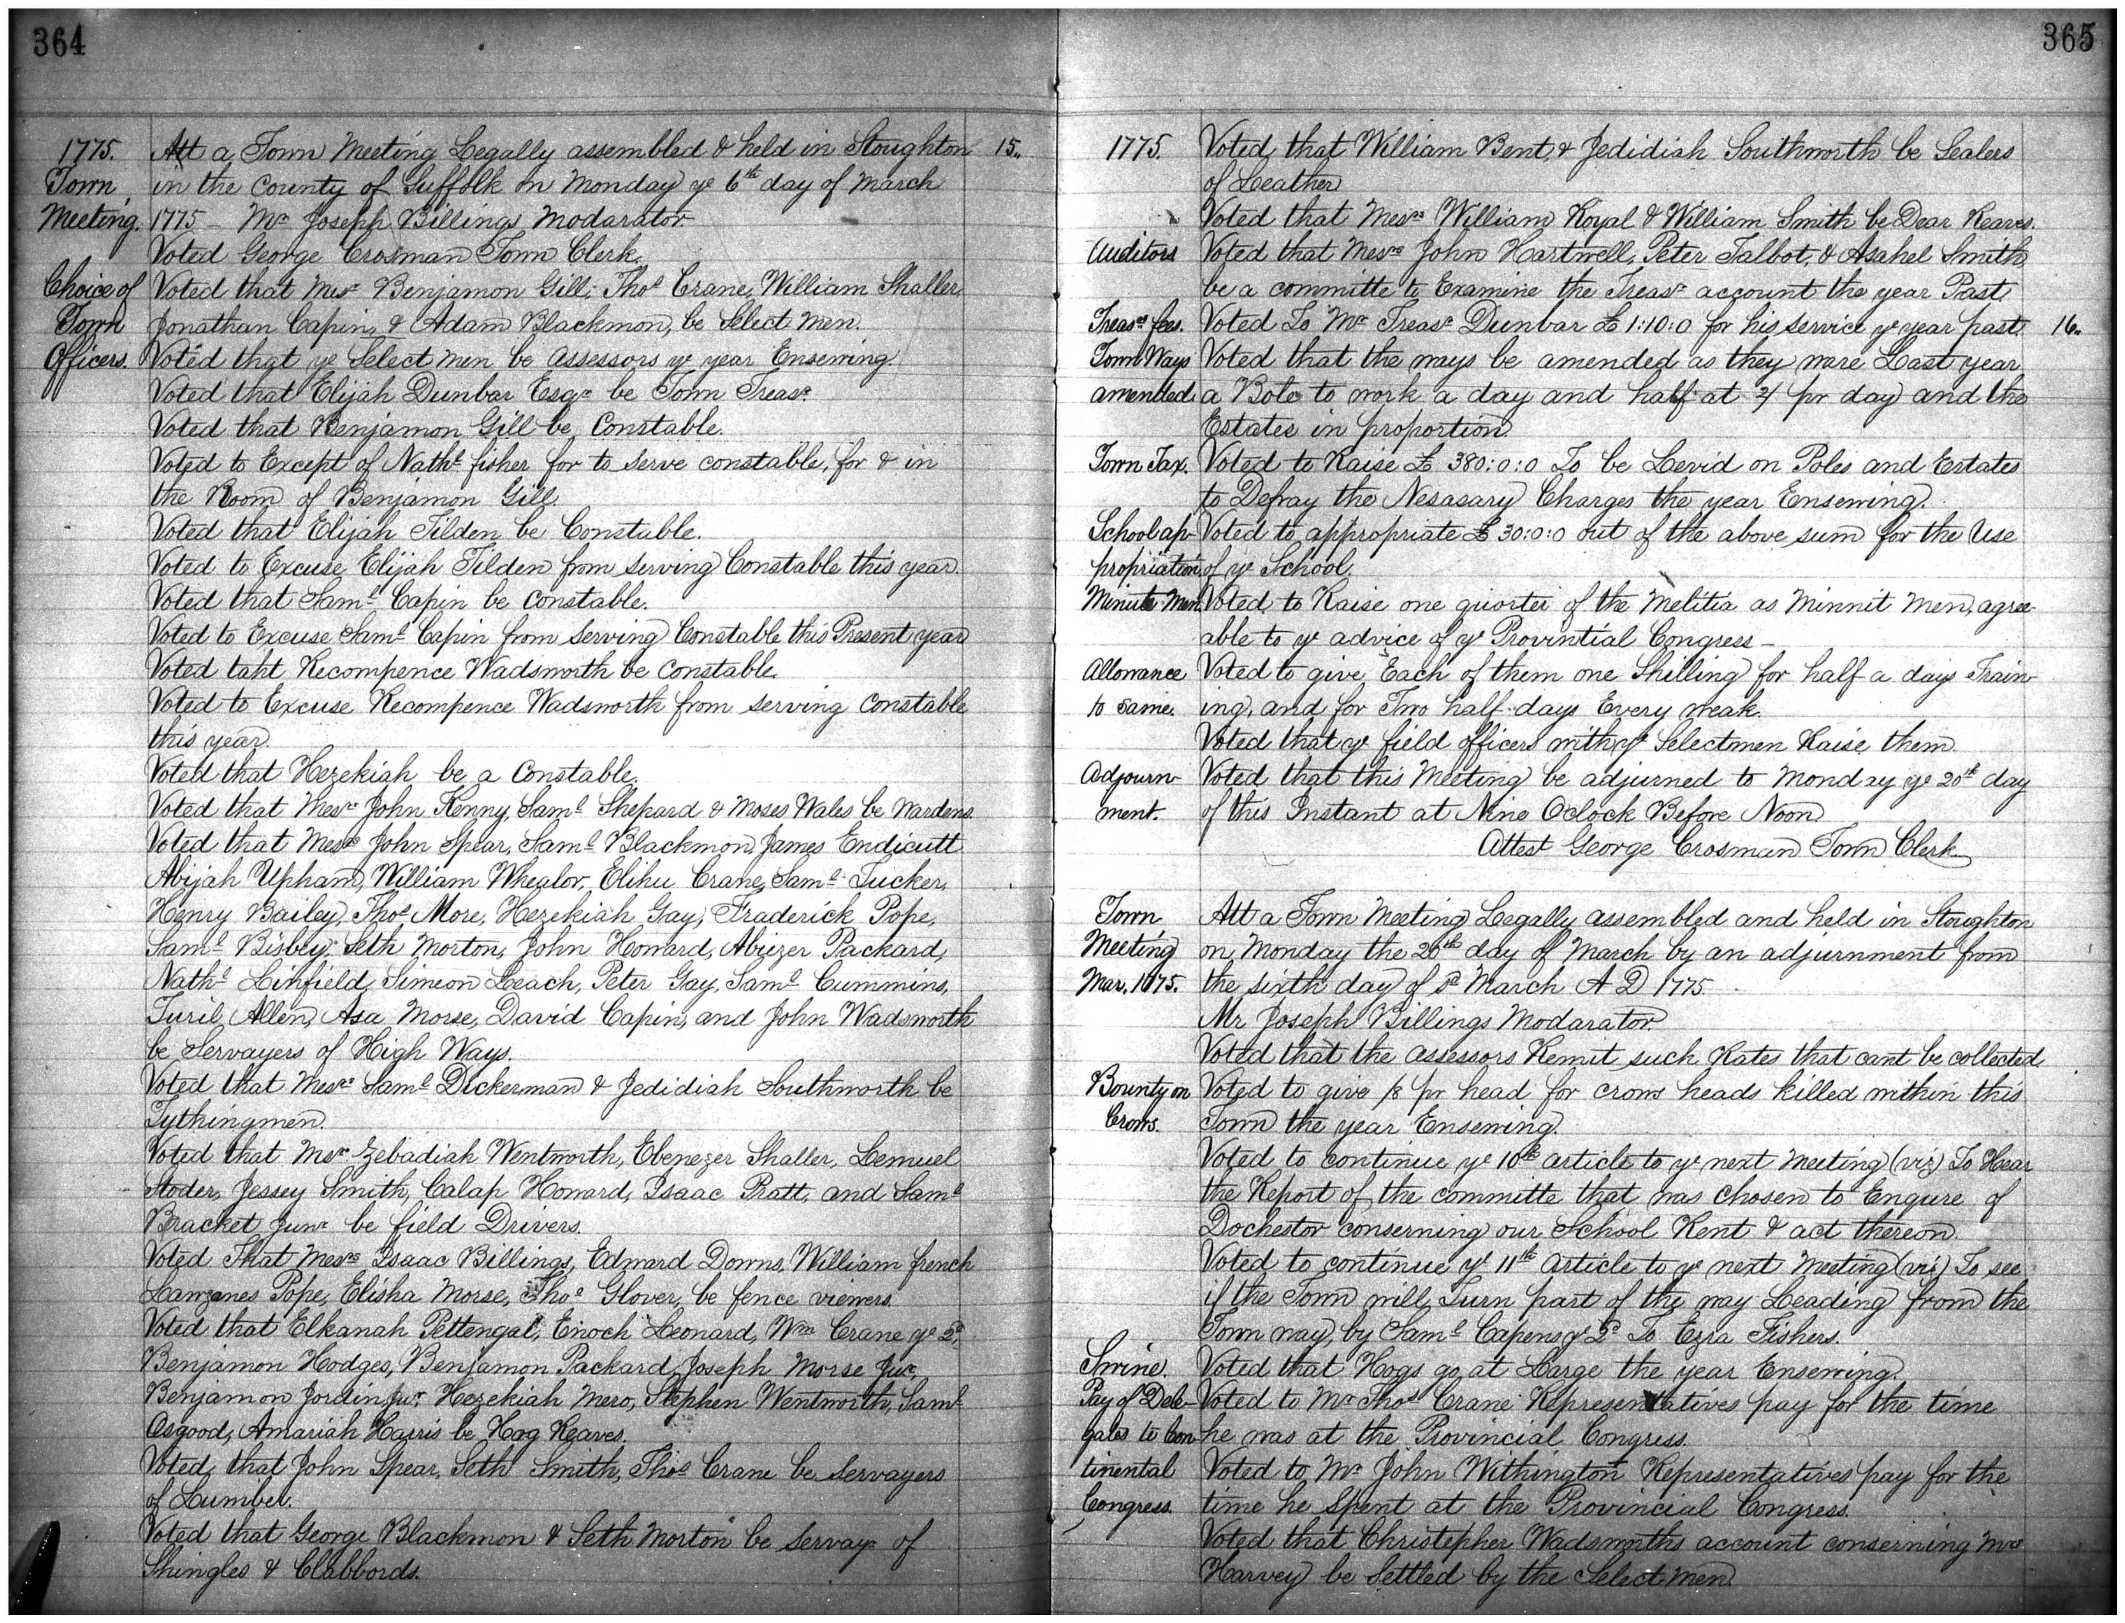 364
1775. Att a Town Meeting Legally assembled & held in Stoughton 15..
Town in the County of Suffolk on Monday ye 6th day of March
Meeting. 1775 – Mr Joseph Billings Modarator.
Voted George Crosman Town Clerk.
Choice of Voted that Mesrs Benjamon Gill, Thos Crane, William Shaller,
Town Jonathan Capin, & Adam Blackmon, be Select men.
Officers. Voted that ye Select men be assessors ye year Ensewing.
Voted that Elijah Dunbar Esqr be Town Treasr.
Voted that Benjamon Gill be Constable.
Voted to Except of Nathl fisher for to serve constable, for & in
the Room of Benjamon Gill.
Voted that Elijah Tilden be Constable.
Voted to Excuse Elijah Tilden from serving Constable this year.
Voted that Saml Capin be Constable.
Voted to Excuse Saml Capin from serving Constable this Present year
Voted taht Recompence Wadsworth be Constable.
Voted to Excuse Recompence Wadsworth from serving Constable
this year.
Voted that Hezekiah be a Constable.
Voted that Mesrs John Kenny, Saml Shepard & Moses Wales be wardens.
Voted that Mesrs John Spear, Saml Blackmon, James Endicutt
Abijah Upham, William Whealor, Elihu Crane, Saml Tucker,
Henry Bailey, Thos More, Hezekiah Gay, Fraderick Pope,
Saml Bisbey, Seth Morton, John Howard, Abiezer Packard,
Nathl Linfield, Simeon Leach, Peter Gay, Saml Cummins,
Turil Allen, Asa Morse, David Capin, and John Wadsworth
be Servayers of High Ways.
Voted that Mesrs Saml Dickerman & Jedidiah Southworth be
Tythingmen.
Voted that Mesrs Zebadiah Wentworth, Ebenezer Shaller, Lemuel
Stoder, Jessey Smith, Calap Howard, Isaac Pratt, and Saml
Bracket Junr be field Drivers.
Voted That Mesrs Isaac Billings, Edward Downs, William french
Pope, Elisha Morse, Thos Glover, be fence viewers.
Voted that Elkanah Pettengal, Enoch Leonard, Wm Crane ye 2d,
Benjamon Hodges, Benjamon Packard, Joseph Morse Jur,
Benjamon Jordin Jur, Hezekiah Mero, Stephen Wentworth, Saml
Osgood, Amariah Harris be Hog Reaves.
Voted that John Spear, Seth Smith, Thos Crane be Servayers
of Lumber.
Voted that George Blackmon & Seth Morton be Servayrs of
Shingles & Clabbords.
365
1775. Voted that William Bent, & Jedidiah Southworth be Sealers
of Leather
Voted that Mesrs William Royal & William Smith be Dear Reaves.
Auditors Voted that Mesrs John Hartwell, Peter Talbot, & Asahel Smith
be a committe to Examine the Treasr account the year Past
Treasrs fees. Voted To Mr Treasr Dunbar £1:10:0 for his service ye year past. 16..
Town Ways Voted that the ways be amended as they ware Last year
amended. a Bole to work a day and half at 2/ pr day and the
Estates in proportion
Town Tax. Voted to Raise £ 380:0:0 To be Levid on Poles and Estates
to Defray the Nesasary Charges the year Ensewing.
School ap- Voted to appropriate £ 30:0:0 out of the above sum for the Use
propriation. of ye School.
Minute Men. Voted to Raise one quorter of the Melitia as Minnit Men, agree-
able to ye advice of ye Provintial Congress –
Allowance Voted to give Each of them one Shilling for half a days Train-
to same. ing, and for Two half-days Every weak.
Voted that ye field officers with ye Selectmen Raise them
Adjourn- Voted that this Meeting be adjurned to Monday ye 20th day
ment. of this Instant at Nine Oclock Before Noon
Attest George Crosman Town Clerk.
Town Att a Town Meeting Legally assembled and held in Stoughton
Meeting on Monday the 20th day of March by an adjurnment from
Mar. 1775. the sixth day of sd March A D 1775
Mr Joseph Billings Modarator.
Voted that the assessors Remit such Rates that cant be collected.
Bounty on Voted to give /8 pr head for crows heads killed within this
Crows. Town the year Ensewing.
Voted to continue ye 10th article to ye next Meeting (viz) To Haar
the Report of the committe that was chosen to Enqure of
Dochestor conserning our School Rent & act thereon.
Voted to continue ye 11th article to ye next Meeting (viz) To see
if the Town will Turn part of the way Leading from the
Town way by Saml Capens ye 2d To Ezra Fishers.
Swine. Voted that Hogs go at Large the year Ensewing.
Pay of Dele- Voted to Mr Thos Crane Representatives pay for the time
gates to Con- he was at the Provincial Congress.
tinental Voted to Mr John Withington Representatives pay for the
Congress. time he Spent at the Provincial Congress.
Voted that Christepher Wadsworths account conserning Mrs
Harvey be Settled by the Select men